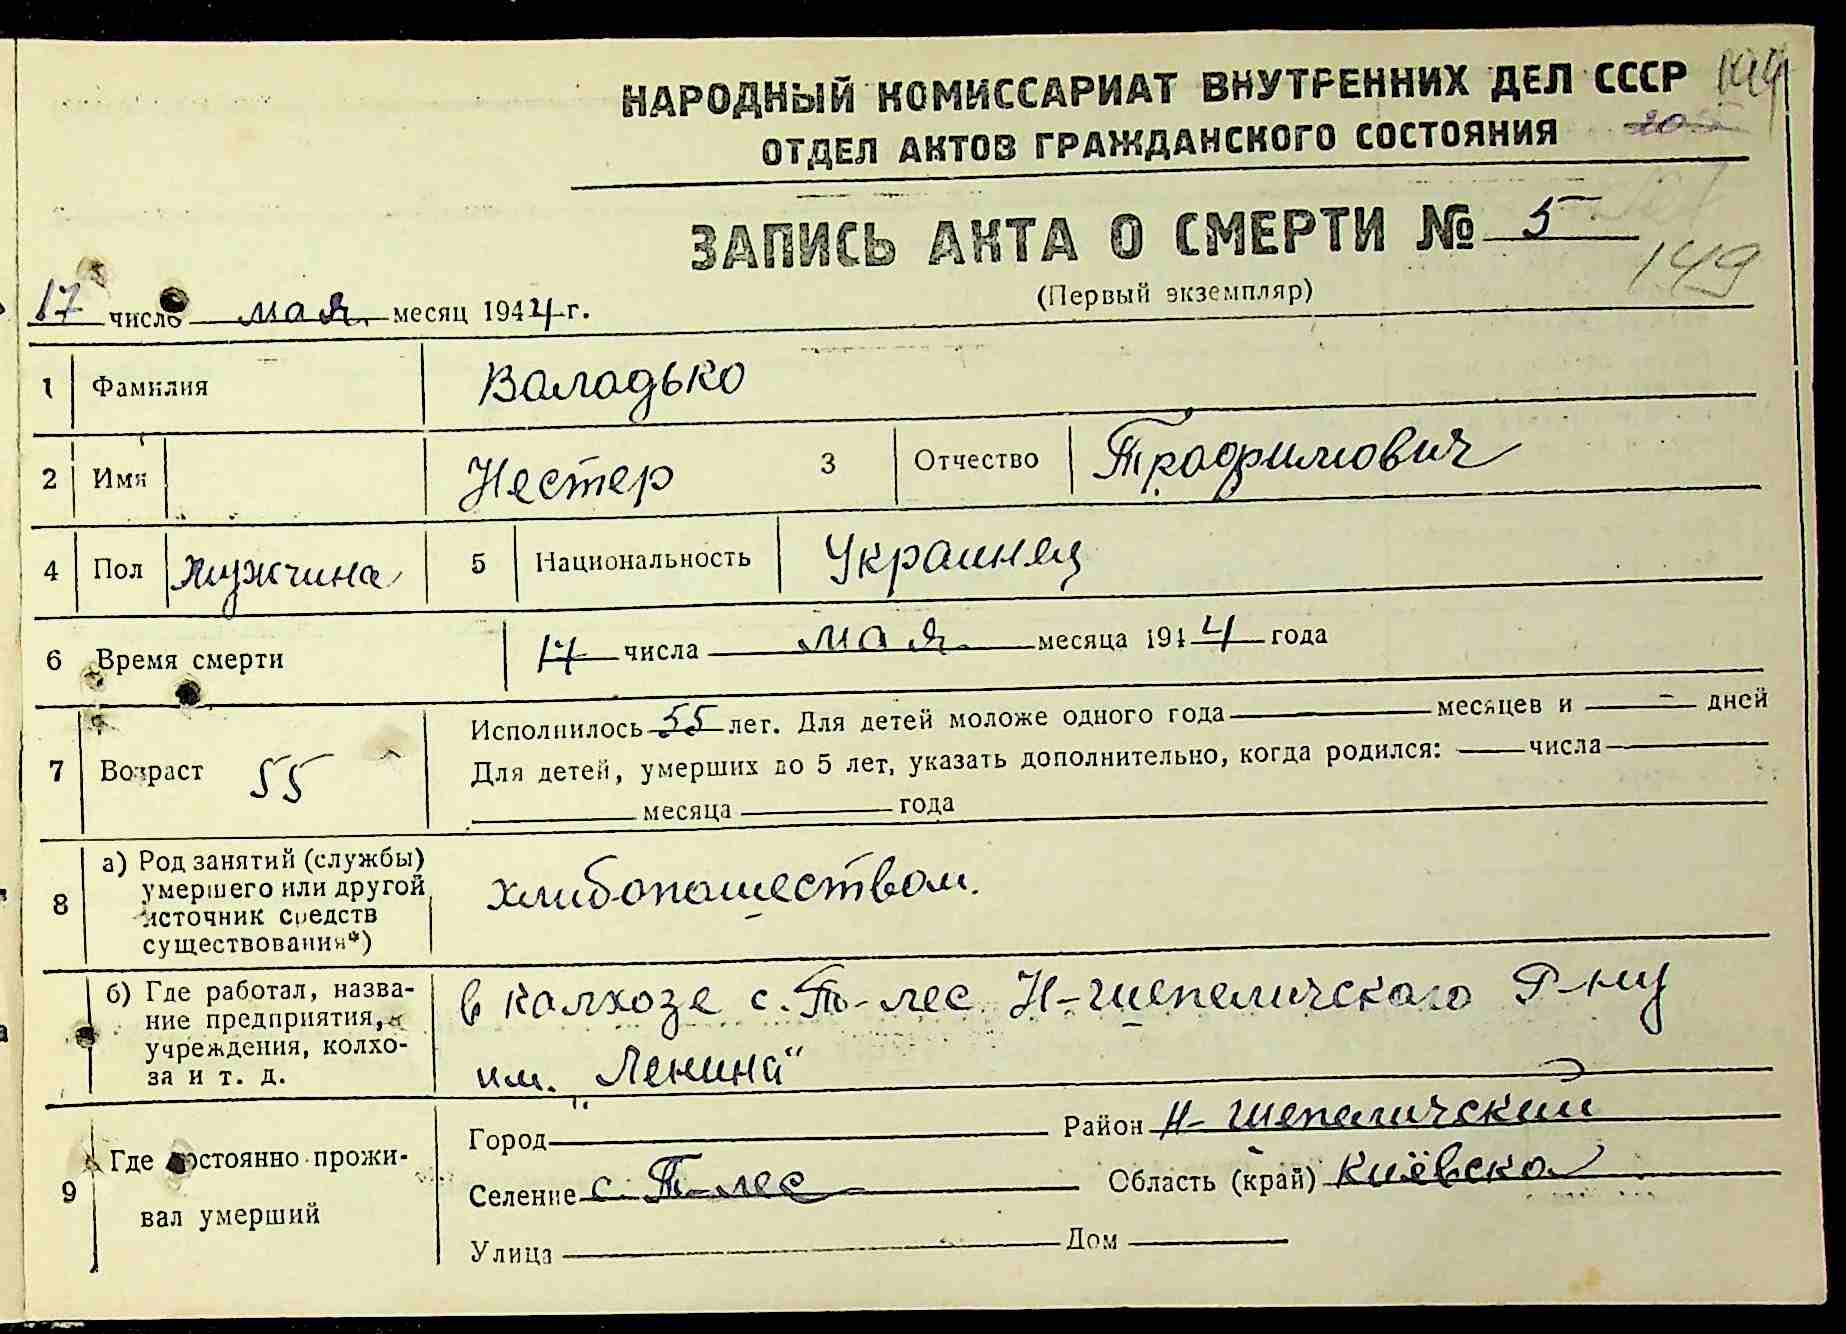 НАРОДНЫЙ КОМИССАРИАТ ВНУТРЕННИХ ДЕЛ СССР
ОТДЕЛ АКТОВ ГРАЖДАНСКОГО СОСТОЯНИЯ
ЗАПИСЬ АКТА О СМЕРТИ № 5
149
(Первый экземпляр)
17 число мая месяц 1944 г.
1 Фамилия Валадько
2 Имя Нестер 3 Отчество Трафимович
4 Пол мужчина 5 Национальность Украинец
6 Время смерти 17 числа мая месяца 1944 года
7 Возраст 55 Исполнилось 55 лет. Для детей моложе одного года месяцев и дней
Для детей, умерших до 5 лет, указать дополнительно, когда родился: числа
месяца года
8 а) Род занятий (службы)
умершего или другой
источник средств
существования*)
хлибопашеством.
б) Где работал, назва-
ние предприятия,
учреждения, колхо-
за и т. д.
в калхозе с. Т-лес Н-шепеличского Р-ну
им. Ленина"
9 Где постоянно прожи-
вал умерший
Город Район Н-шепеличский
Селение с. Т-лес Область (край) Киевская
Улица Дом